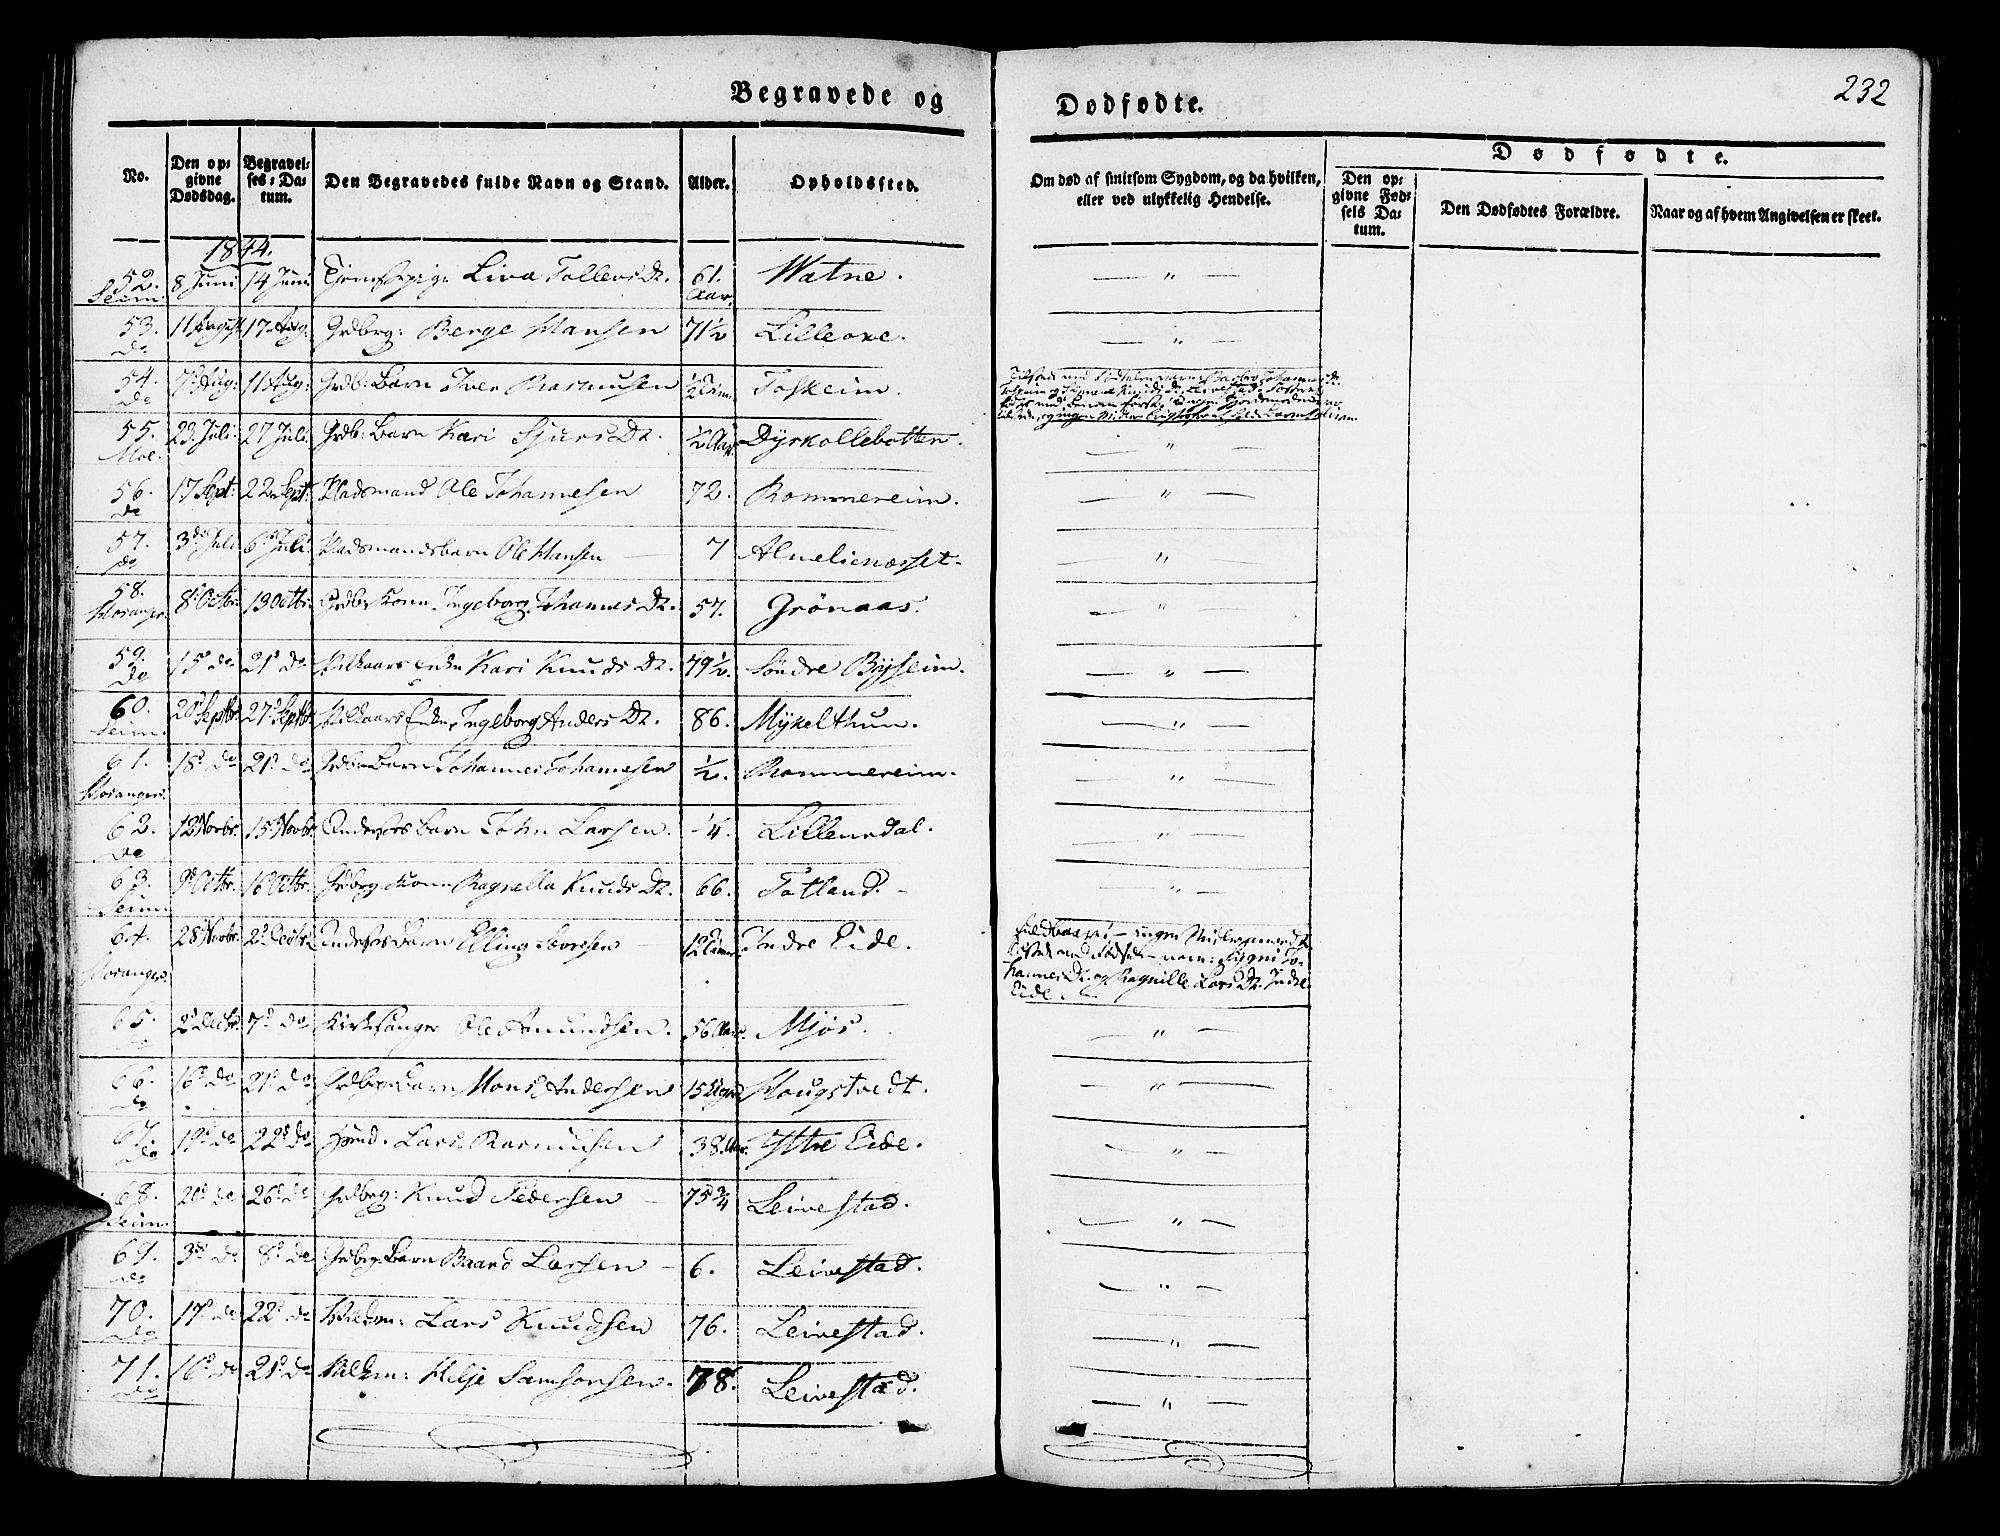 232
Begravede og Dødfødte.
No. Den opgivne Dødsdag. Begravelses-Datum. Den Begravedes fulde Navn og Stand. Alder. Opholdssted. Om død af smitsom Sygdom, og da hvilken, eller ved ulykkelig Hendelse. Dødfødte. Den opgivne Fødsels Datum. Den Dødfødtes Forældre. Naar og af hvem Angivelsen er skeet.
1844.
52. Seim. 8 Juni 14 Juni Liva Tollevs Dr. 61. Aar. Watne. — " —
53. do 11 August 17 Aug: Grdbrg: Berge Hansen 71½ Lilleoxe. — " —
54. do 7d Aug: 11 Aug: Grdb: Barn Iver Rasmusen ½ Time Toskeim.
55. Moe. 23 Juli 27 Juli Grdb: Barn Kari Sjurs Dr. ½ Aar Dyrkollebotten. — " —
56. do 17 Sept: 22 Sept: Pladsmand Ole Johannesen 72. Rommereim. — " —
57. do 3d Juli 6d Juli Pladsmandsbarn Ole Hansen — 7 Almelienæsset. — " —
58. Hosanger. 8d Octbr. 13 Octbr. Grdbr. Kone Ingeborg Johannes Dr. 57. Grönaas. — " —
59. do 15d do 21d do Vilkaars Enke Kari Knuds Dr. 79½ Söndre Bysheim. — " —
60. Seim. 20d Septbr. 27d Septbr. Vilkaars Enke, Ingeborg Anders Dr. 86. Mykelthun. — " —
61. Hosanger. 18d do 21d do Grdb. Barn Johannes Johannesen ½. Rommereim. — " —
62. do 12 Novbr. 15 Novbr. Barn John Larsen. ¼. Lillemdal. — " —
63. Seim. 9d Octbr. 16 Octbr. Grdbrg Kone Ragnella Knuds Dr. 66. Totland. — " —
64. Hosanger. 28 Novbr. 2d Decbr. Barn Elling Sevresen — 12 Timer Indre Eide. ingen
Johannes Dr. og Ragnille Lars Dr. Indre
Eide.
65. do 2d Decbr. 7d do Kirkesanger Ole Amundsen. 56 Aar. Mjös. — " —
66. do 16d do 21d do Grdbrg. Barn Mons Andersen 15 Uger Hougstvedt. — " —
67. do 19d do 22d do Lars Rasmussen 38 Aar. Ystre Eide. — " —
68. Seim. 20d do 26d do Grdbrg: Knud Pedersen — 75¾ Leivestad. — " —
69. do 3d do 8d do Grdbrg. Barn Baard Larsen — 6. Leivestad. — " —
70. do 17d do 22d do Vilkm: Lars Knudsen 76. Leivestad. — " —
71. do 16d do 21d do Vilkm: Helje Samsonsen. 78. Leivestad. — " —